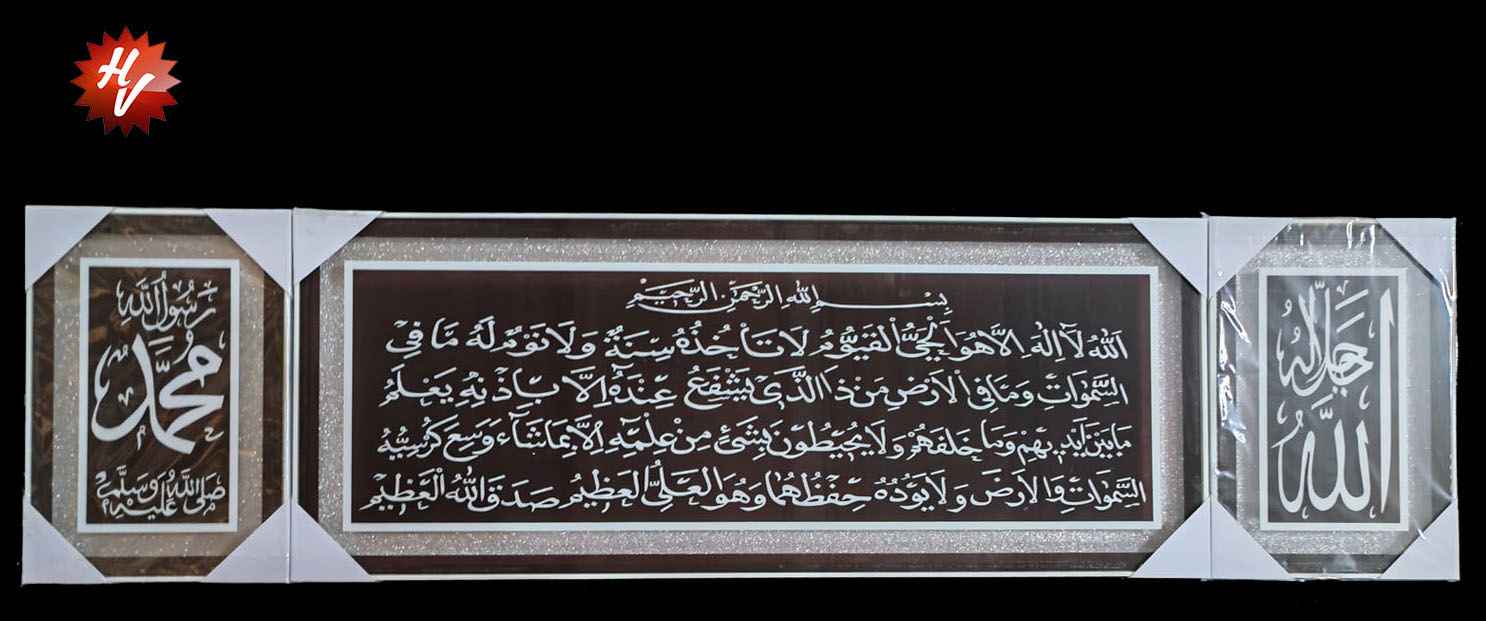 HV
الله
جل جلاله
بسم الله الرحمن الرحيم
الله لا اله الا هو الحي القيوم لا تأخذه سنة ولا نوم له ما في
السموات وما في الارض من ذا الذي يشفع عنده الا باذنه يعلم
ما بين ايديهم وما خلفهم ولا يحيطون بشئ من علمه الا بما شاء وسع كرسيه
السموات والارض ولا يؤده حفظهما وهو العلي العظيم صدق الله العظيم
رسول الله
محمد
صلى الله عليه وسلم